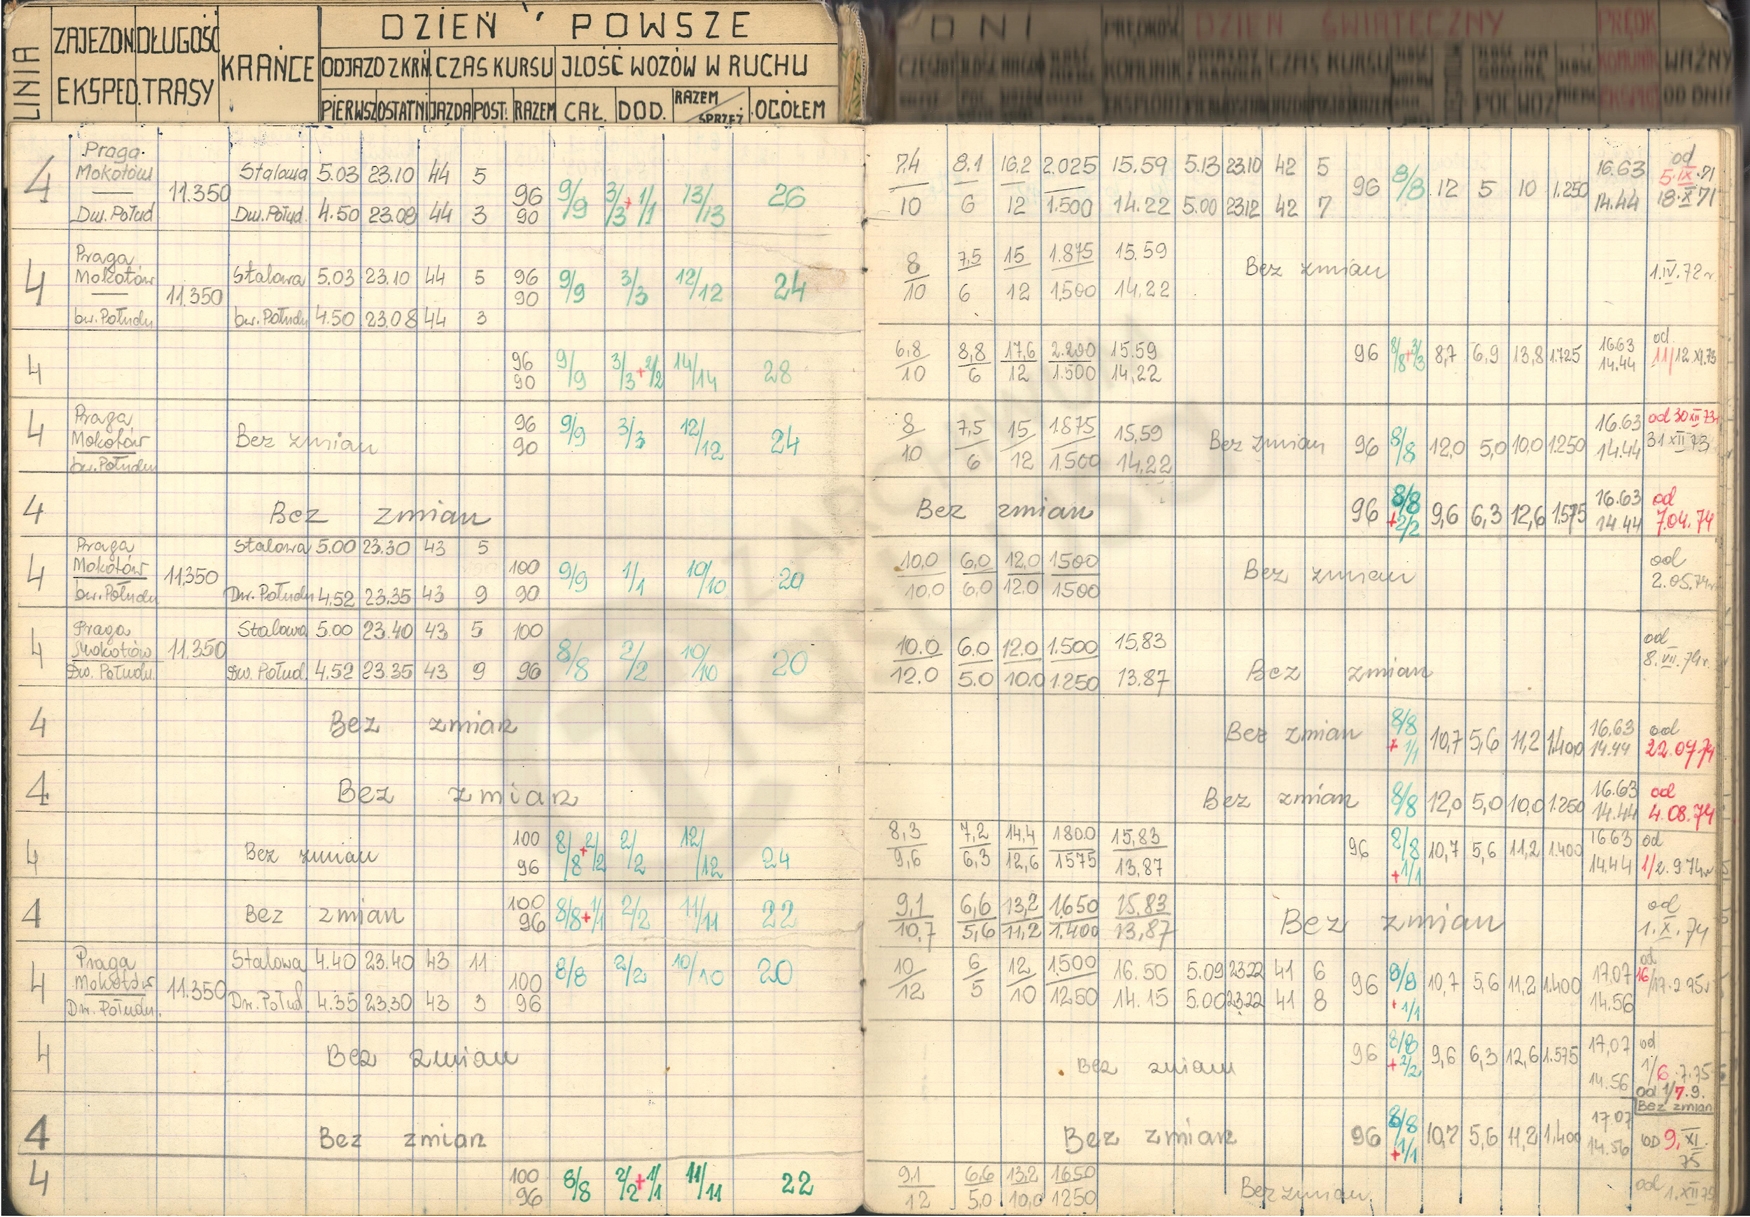 LINIA ZAJEZDN. EKSPED. DŁUGOŚĆ TRASY KRAŃCE DZIEŃ POWSZE
ODJAZD Z KRŃ. CZAS KURSU JLOŚĆ WOZÓW W RUCHU
PIERWSZ OSTATNI JAZDA POST. RAZEM CAŁ. DOD. RAZEM SPRZĘŻ. OGÓŁEM
DNI DZIEŃ ŚWIĄTECZNY
CZAS KURSU WAŻNY
OD DNIA
4 Praga Mokotów 11.350 Stalowa 5.03 23.10 44 5 96 9/9 3/3 + 1/1 13/13 26 7.4 8.1 16.2 2.025 15.59 5.13 23.10 42 5 96 8/8 12 5 10 1.250 16.63 od 5.IX.71
Dw. Połud Dw. Połud. 4.50 23.08 44 3 90 10 6 12 1.500 14.22 5.00 23.12 42 7 14.44 18.X 71
4 Praga Mokotów 11.350 Stalowa 5.03 23.10 44 5 96 9/9 3/3 12/12 24 8 7,5 15 1.875 15.59 Bez zmian 1.IV.72r
Dw. Połudn Dw. Połudn 4.50 23.08 44 3 90 10 6 12 1.500 14.22
4 96 9/9 3/3 + 2/2 14/14 28 6,8 8,8 17,6 2.200 15.59 96 8/8 + 3/3 8,7 6,9 13,8 1.725 16.63 od 11/12 XI.73
90 10 6 12 1.500 14,22 14.44
4 Praga Mokotów Dw. Połudn Bez zmian 96 9/9 3/3 12/12 24 8 7,5 15 1875 15,59 Bez zmian 96 8/8 12,0 5,0 10,0 1250 16.63 od 30 XII 73
90 10 6 12 1.500 14,22 14.44 31 XII 73
4 Bez zmian Bez zmian 96 8/8 + 2/2 9,6 6,3 12,6 1.575 16.63 14.44 od 7.04.74
4 Praga Mokotów 11.350 Stalowa 5.00 23.30 43 5 100 9/9 1/1 10/10 20 10,0 6,0 12,0 1500 Bez zmian od 2.05.74r
Dw. Połudn Dw. Połudn 4.52 23.35 43 9 90 10,0 6,0 12,0 1500
4 Praga Mokotów 11.350 Stalowa 5.00 23.40 43 5 100 8/8 2/2 10/10 20 10.0 6.0 12.0 1.500 15,83 Bez zmian od 8.VII.74r.
Dw. Połudn. Dw. Połud. 4.52 23.35 43 9 96 12.0 5.0 10.0 1.250 13.87
4 Bez zmian Bez zmian 8/8 + 1/1 10,7 5,6 11,2 1.400 16,63 14.44 od 22.07.74
4 Bez zmian Bez zmian 8/8 12,0 5,0 10,0 1.250 16.63 14.44 od 4.08.74
4 Bez zmian 100 8/8 + 2/2 2/2 12/12 24 8,3 7,2 14,4 1800 15,83 96 8/8 + 1/1 10,7 5,6 11,2 1.400 16.63 od
96 9,6 6,3 12,6 1575 13,87 14.44 1/2.9.74r
4 Bez zmian 100 8/8 + 1/1 2/2 11/11 22 9,1 6,6 13,2 1.650 15.83 Bez zmian od 1.X.74
96 10,7 5,6 11,2 1.400 13,87
4 Praga Mokotów 11.350 Stalowa 4.40 23.40 43 11 100 8/8 2/2 10/10 20 10 6 12 1,500 16.50 5.09 23.22 41 6 96 8/8 + 1/1 10,7 5,6 11,2 1.400 17.07 od 16/17.2 75r
Dw. Połudn. Dw. Połud. 4.35 23.30 43 3 96 12 5 10 1250 14.15 5.00 23.22 41 8 14.56
4 Bez zmian Bez zmian 96 8/8 + 2/2 9,6 6,3 12,6 1.575 17,07 14.56 od 1/6.7.75
od 1/7.9. Bez zmian
4 Bez zmian Bez zmian 96 8/8 + 1/1 10,7 5,6 11,2 1,400 17.07 14.56 OD 9.XI.75
4 100 8/8 2/2 + 1/1 11/11 22 9.1 6,6 13,2 1650 Bez zmian. od 1.XII 75
96 12 5,0 10,0 1250